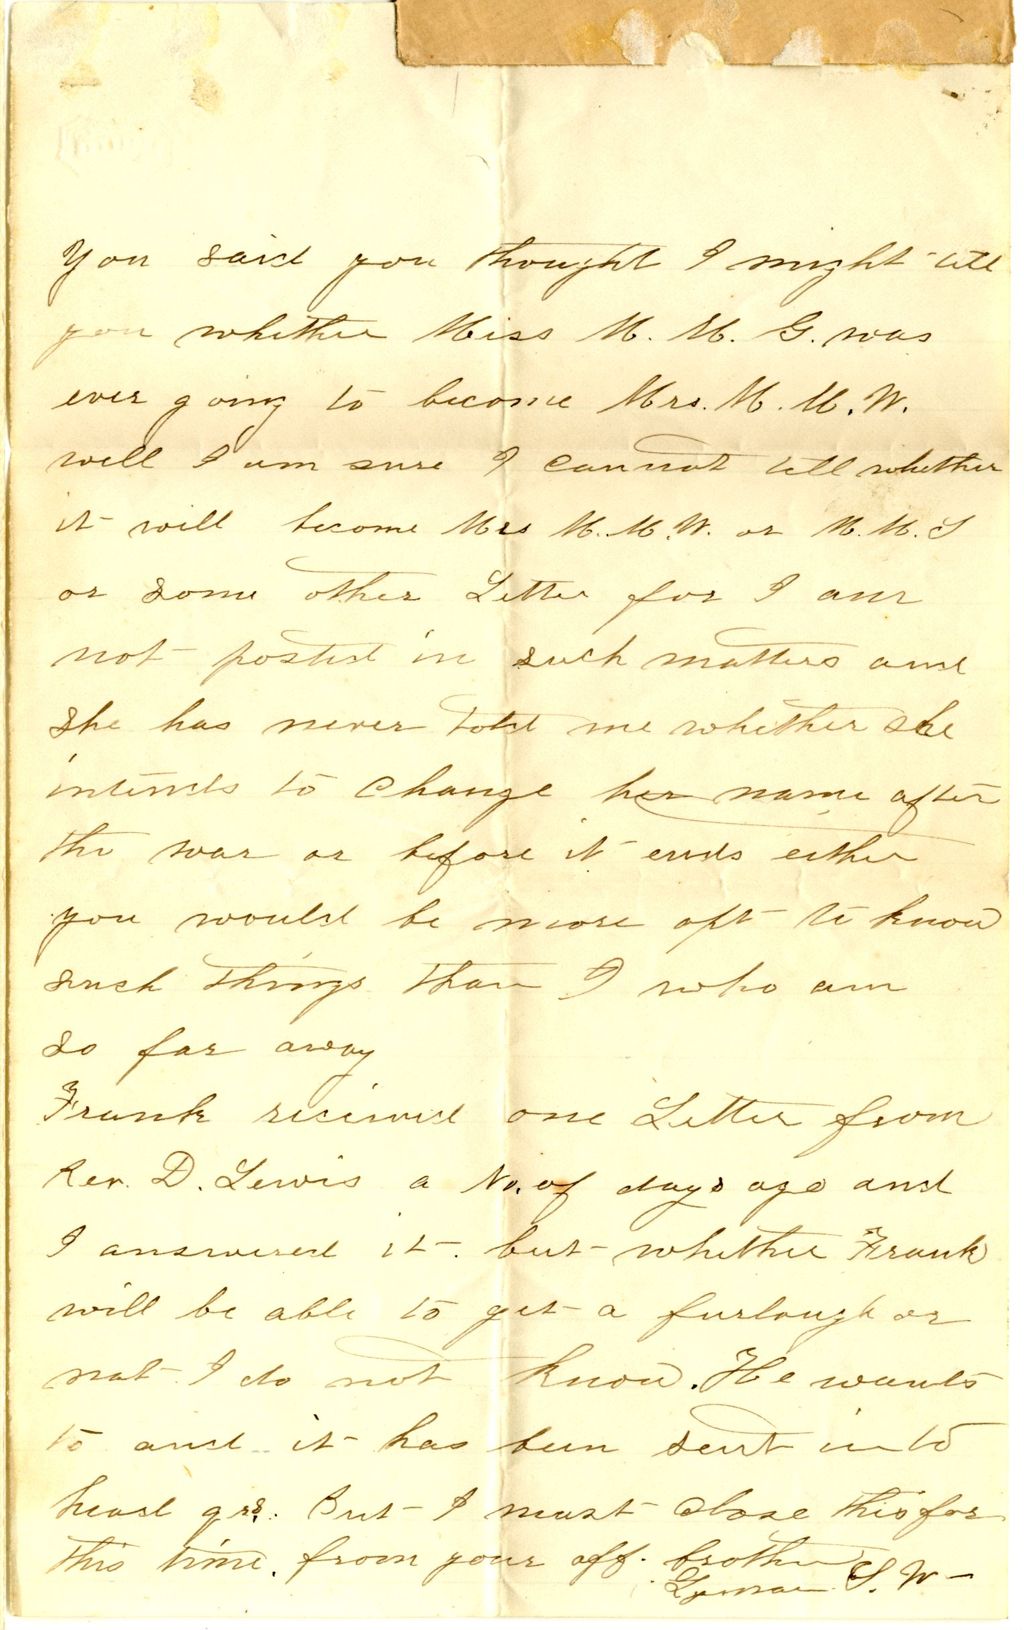 You said you thought I might tell
you whether Miss M. M. G. was
ever going to become Mrs. M. M. W.
well I am sure I cannot tell whether
it will become Mrs M. M. W. or M. M. S
or some other Letter for I am
not posted in such matters and
she has never told me whether she
intends to change her name after
the war or before it ends either
you would be more apt to know
such things than I who am
so far away
Frank received one Letter from
Rev. D. Lewis a No. of days ago and
I answered it. but whether Frank
will be able to get a furlough or
not I do not know. He wants
to and it has been sent in to
head qrs. But I must close this for
this time. from your aff. brother
Lyman S. W